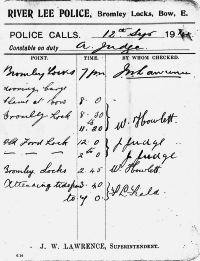 RIVER LEE POLICE, Bromley Locks, Bow, E.
POLICE CALLS. 12th Sept 19
Constable on duty A. Judge.
POINT. TIME. BY WHOM CHECKED.
Bromley Locks 7 pm J W Lawrence
8 0
Bromley Lock 8 30
to
11. 20 W. Howlett
Old Ford Lock 12 0 J Judge
2 0 J Judge
Bromley Locks 2 45 W Howlett
Attending
to 7 0
J. W. LAWRENCE, SUPERINTENDENT.